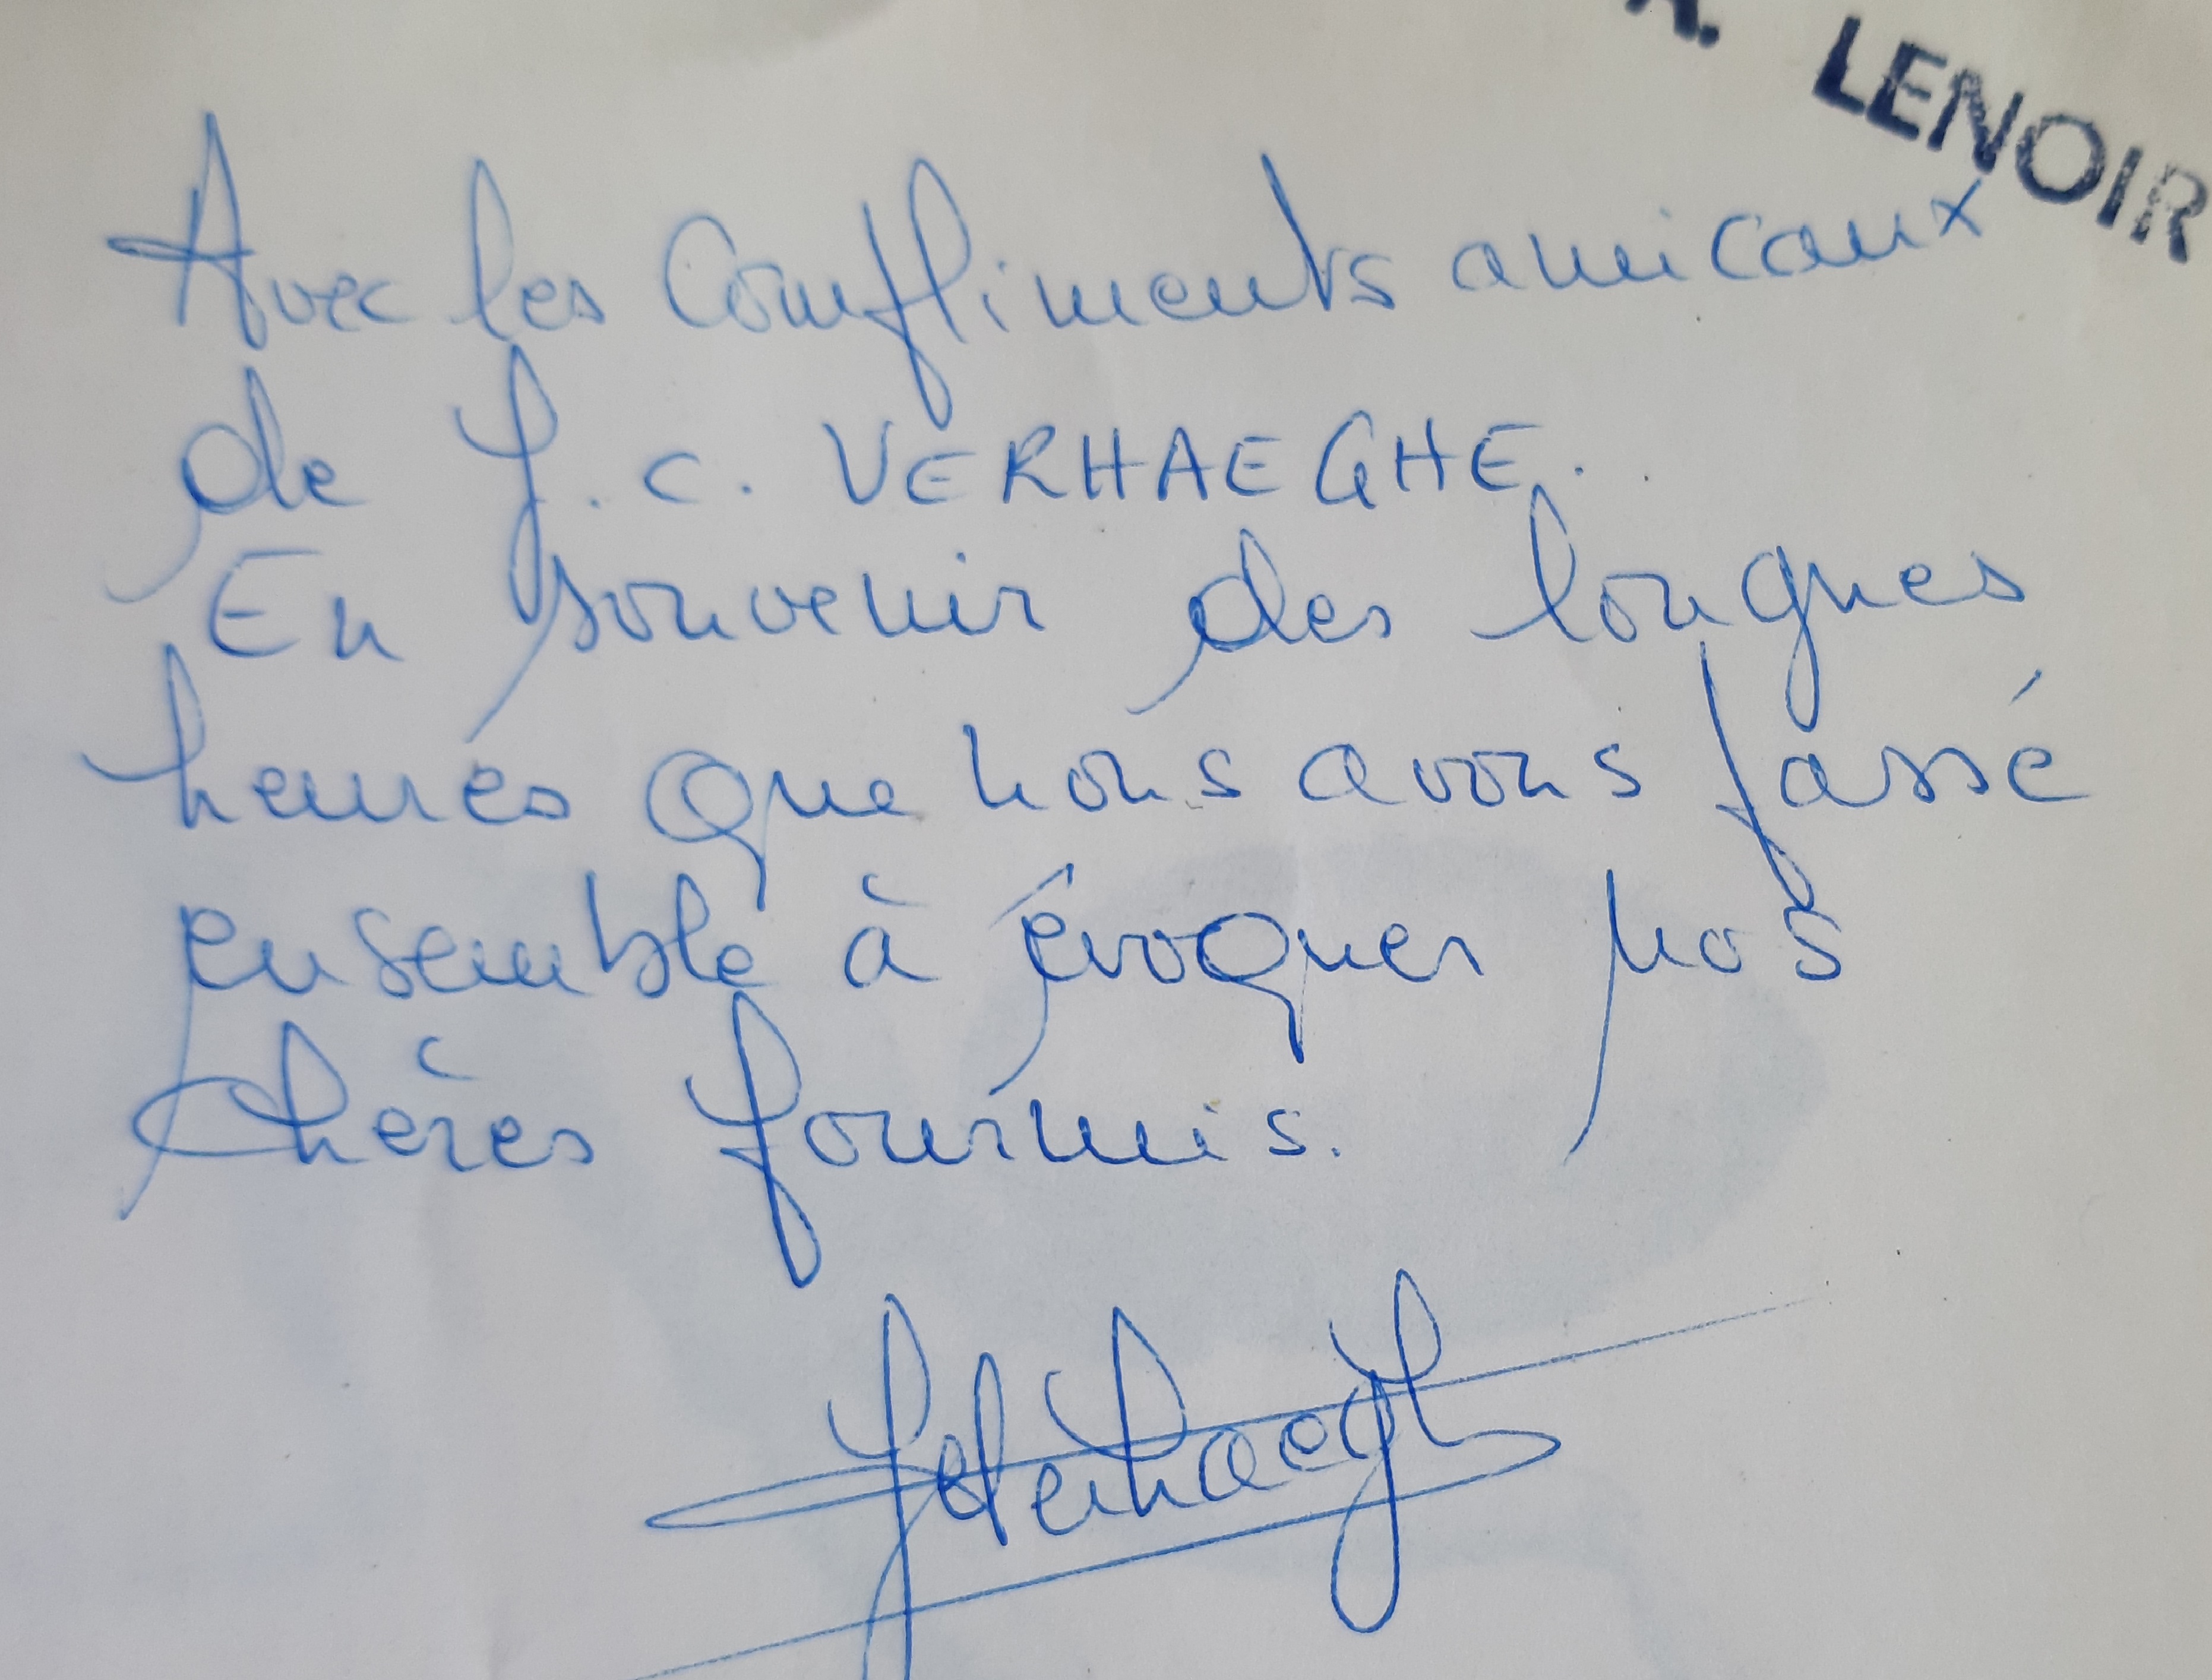 A. LENOIR
Avec les Compliments amicaux
de J. C. VERHAEGHE.
En souvenir des longues
heures que nous avons passé
ensemble à évoquer nos
chères fourmis.
JCVerhaeghe